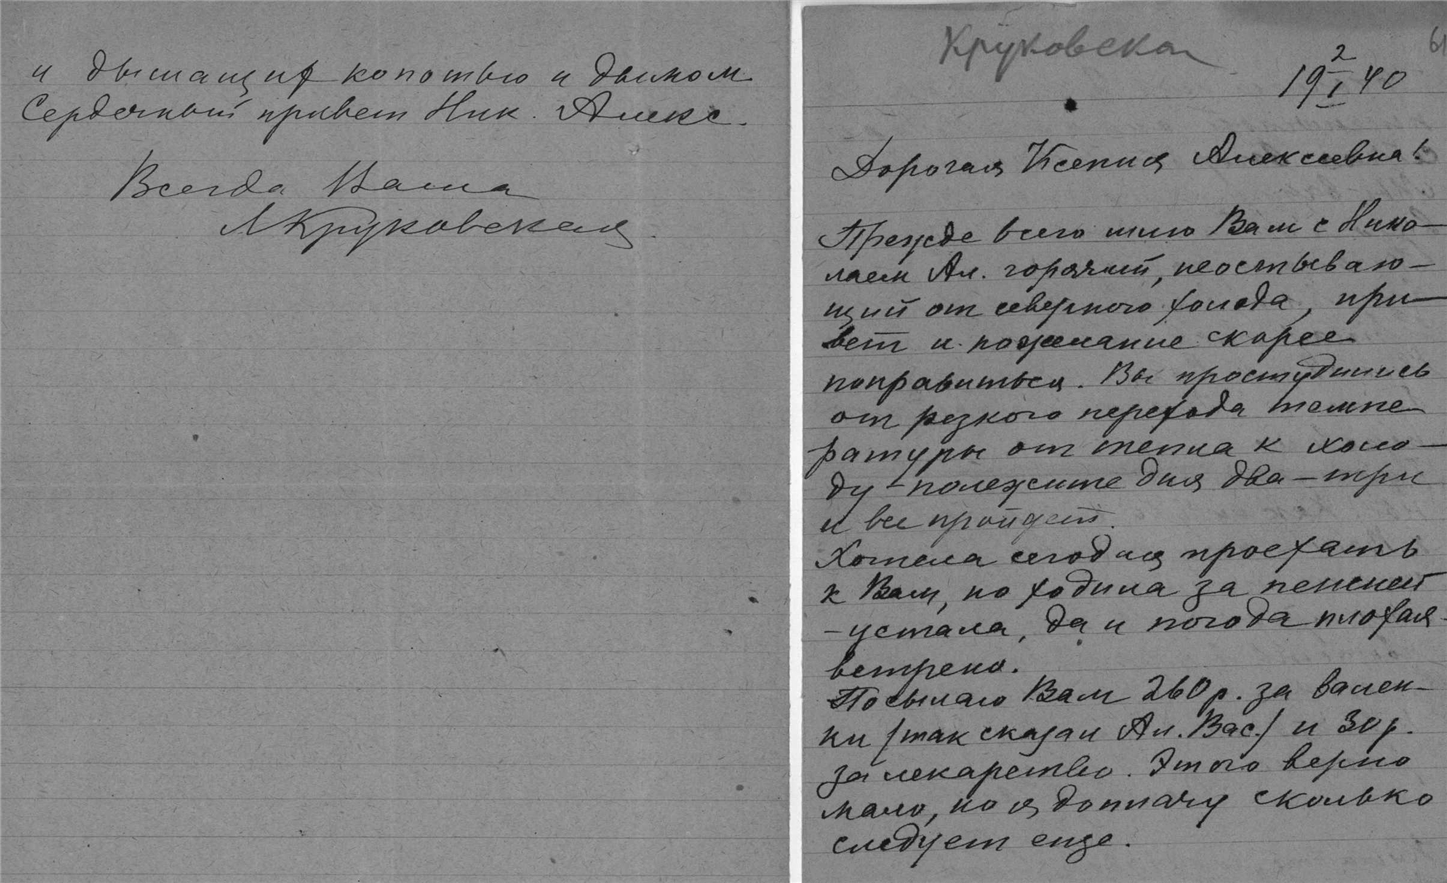 и дышащих копотью и дымом
Сердечный привет Ник. Алекс.
Всегда Ваша
ЛКруковская
Круковская
2
19 I 40
Дорогая Ксения Алексеевна!
Прежде всего шлю Вам с Нико-
лаем Ал. горячий, неостываю-
щий от северного холода, при-
вет и пожелание скорее
поправиться. Вы простудились
от резкого перехода темпе
ратуры от тепла к холо-
ду - полежите дня два - три
и все пройдет.
Хотела сегодня проехать
к Вам, но ходила за пенсией
- устала, да и погода плохая -
ветрено.
Посылаю Вам 260 р. за вален-
ки /так сказал Ал. Вас./ и 30 р.
за лекарство. Этого верно
мало, но я доплачу сколько
следует еще.